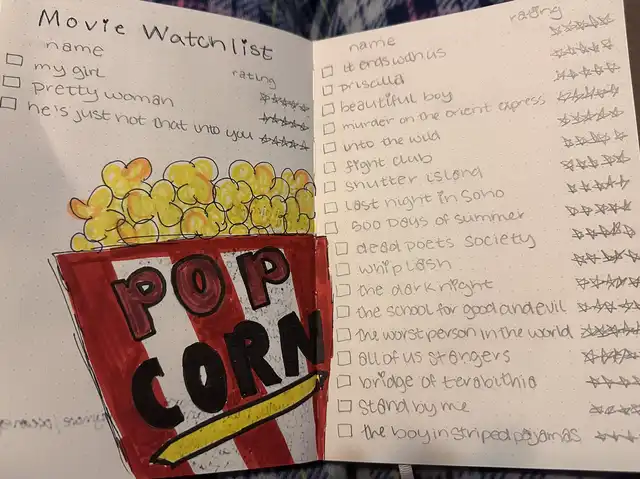 Movie Watchlist
name
rating
my girl
pretty woman
he is just not that into you
POP
CORN
name
rating
It ends with us
priscilla
beautiful boy
murder on the orient express
into the wild
fight club
shutter island
Last night in Soho
500 Days of summer
dead poets society
whiplash
the dark night
the school for good and evil
the worst person in the world
all of us stangers
bridge of terabithia
stand by me
the boy in striped pajamas